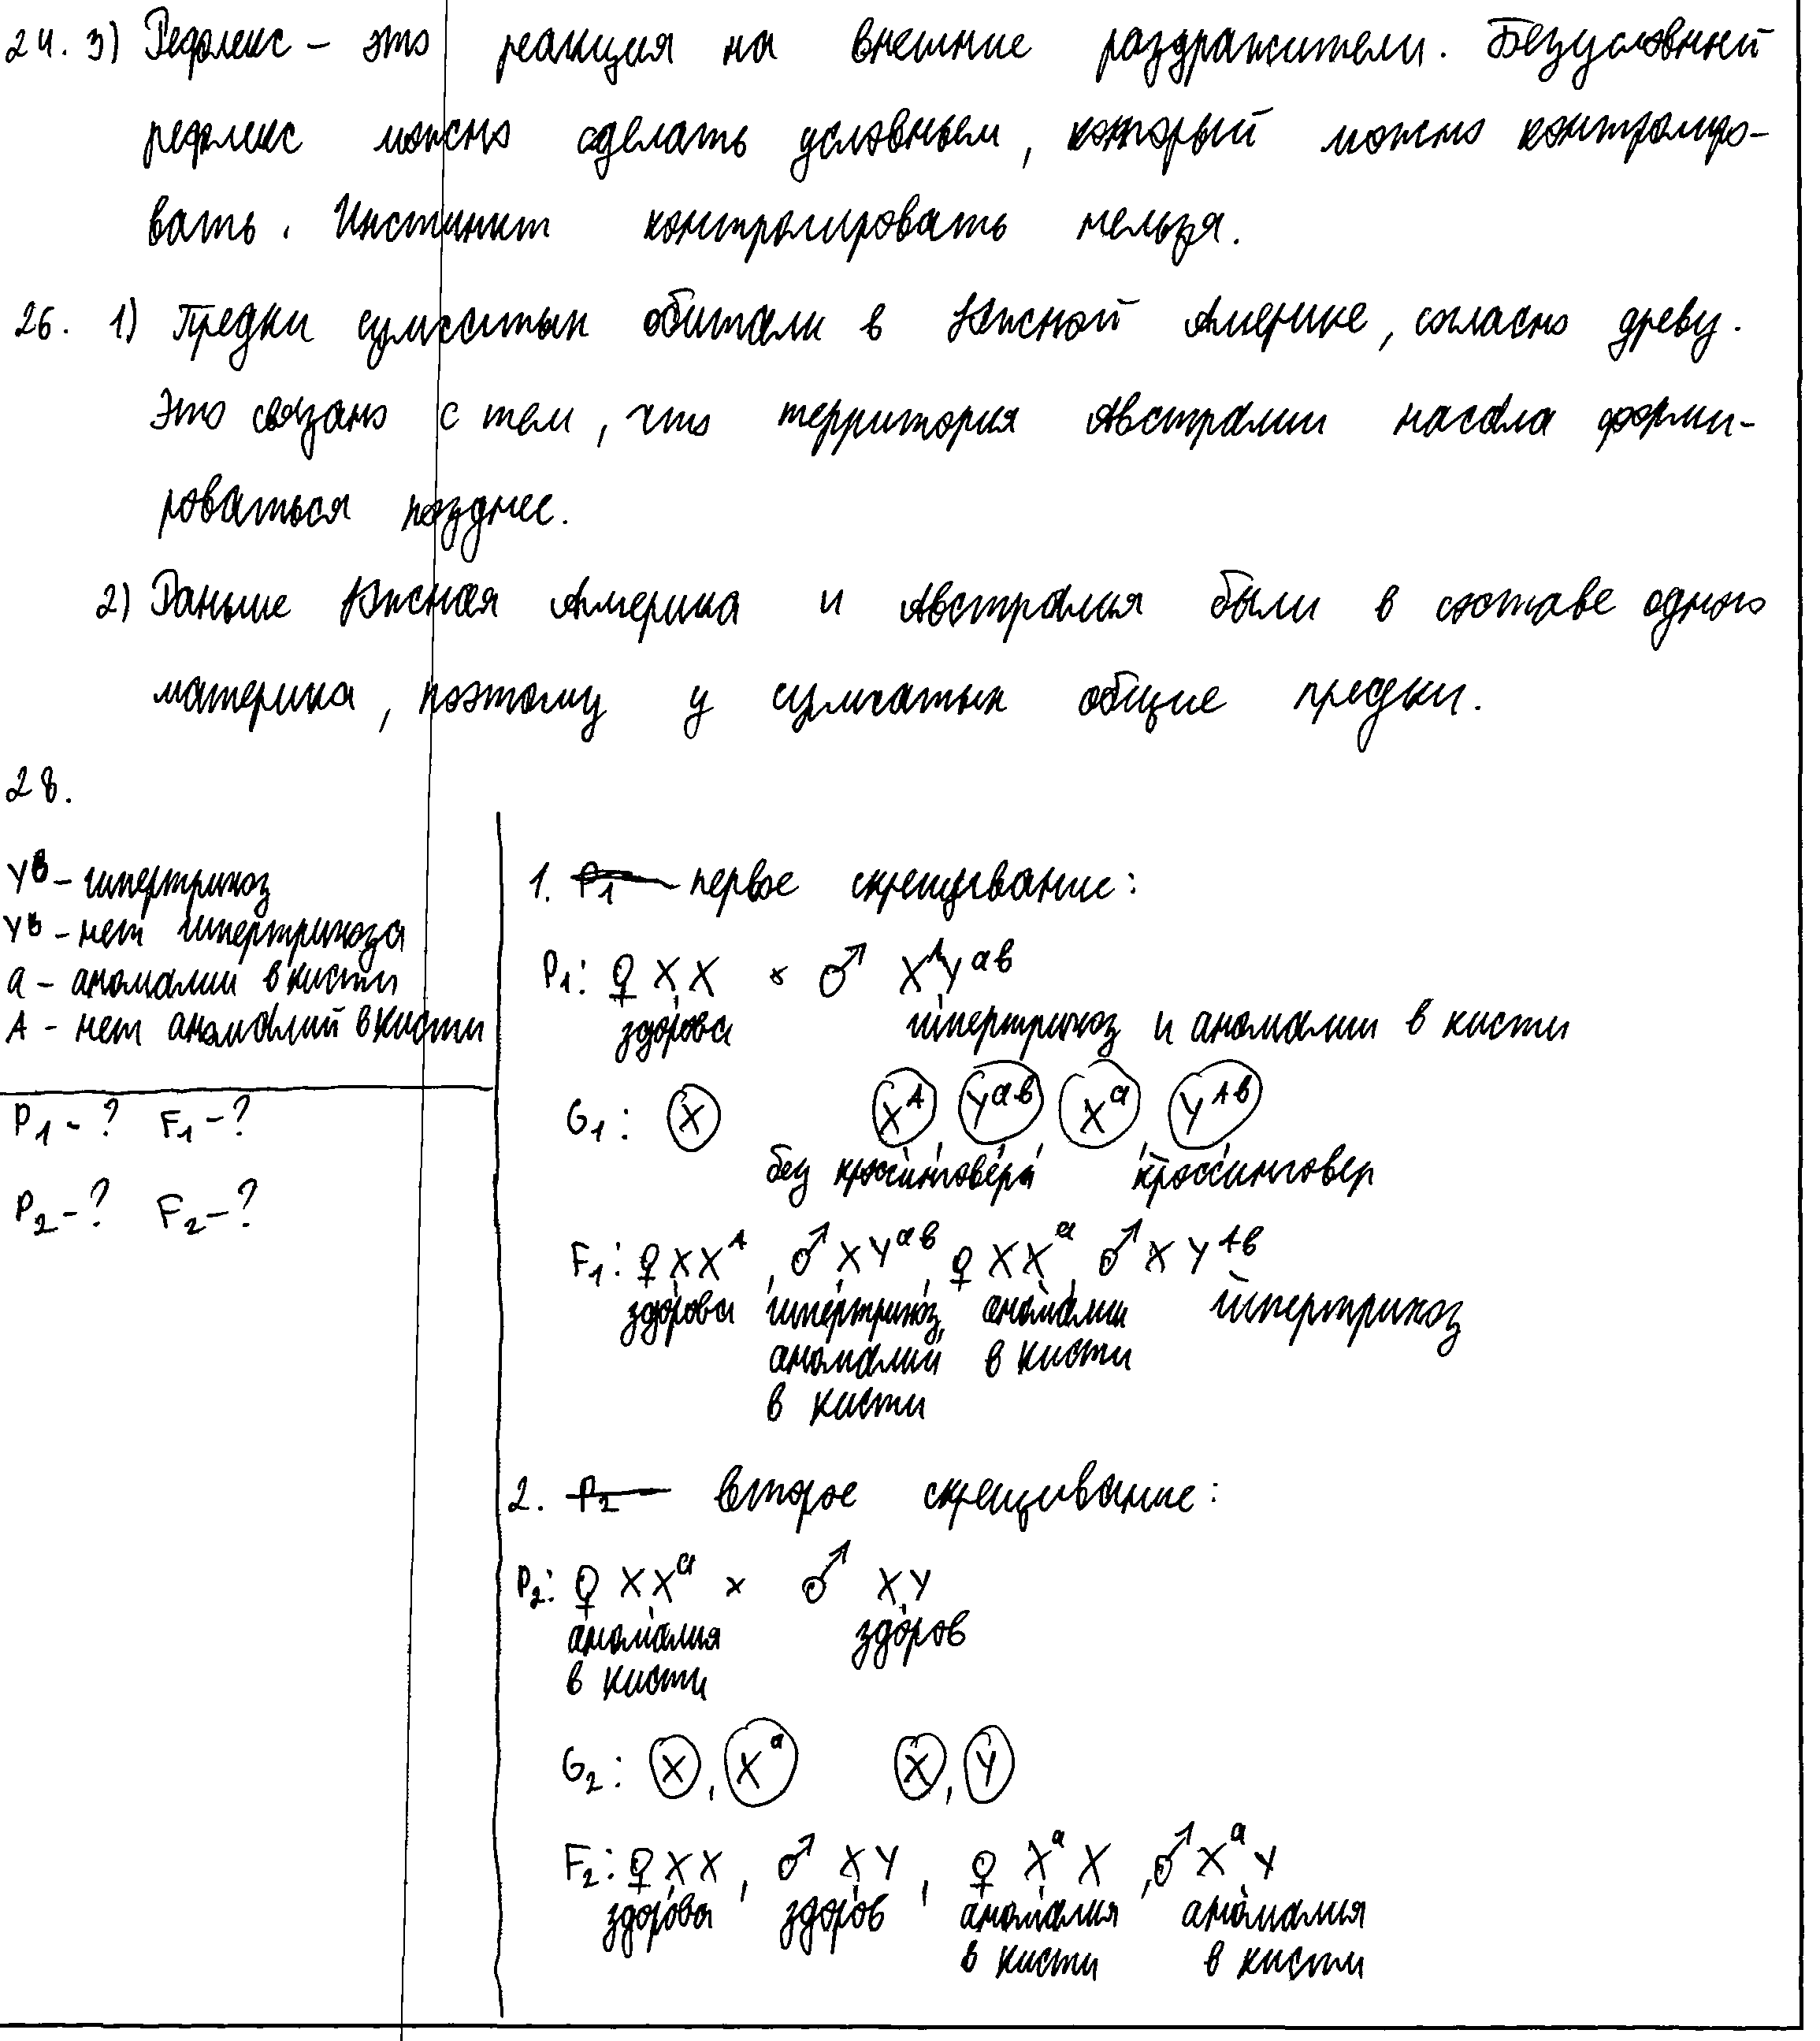 24. 3) Рефлекс – это реакция на внешние раздражители. Безусловный
рефлекс можно сделать условным, который можно контролиро-
вать. Инстинкт контролировать нельзя.
26. 1) Предки сумчатых обитали в Южной Америке, согласно древу.
Это связано с тем, что территория Австралии начала форми-
роваться позднее.
2) Раньше Южная Америка и Австралия были в составе одного
материка, поэтому у сумчатых общие предки.
28.
Yᵇ – гипертрихоз
Yᴮ – нет гипертрихоза
а – аномалии в кисти
А – нет аномалий в кисти
P₁ - ? F₁ - ?
P₂ - ? F₂ - ?
1. P₁ первое скрещивание:
P₁: ♀ XX × ♂ XᴬYᵃᵇ
здорова гипертрихоз и аномалии в кисти
G₁: X Xᴬ, Yᵃᵇ, Xᵃ, Yᴬᵇ
без кроссинговера кроссинговер
F₁: ♀ XXᴬ, ♂ XYᵃᵇ, ♀ XXᵃ, ♂ XYᴬᵇ
здорова гипертрихоз, аномалии гипертрихоз
аномалии в кисти
в кисти
2. P₂ второе скрещивание:
P₂: ♀ XXᵃ × ♂ XY
аномалия здоров
в кисти
G₂: X, Xᵃ X, Y
F₂: ♀ XX, ♂ XY, ♀ XᵃX, ♂ XᵃY
здорова здоров аномалия аномалия
в кисти в кисти